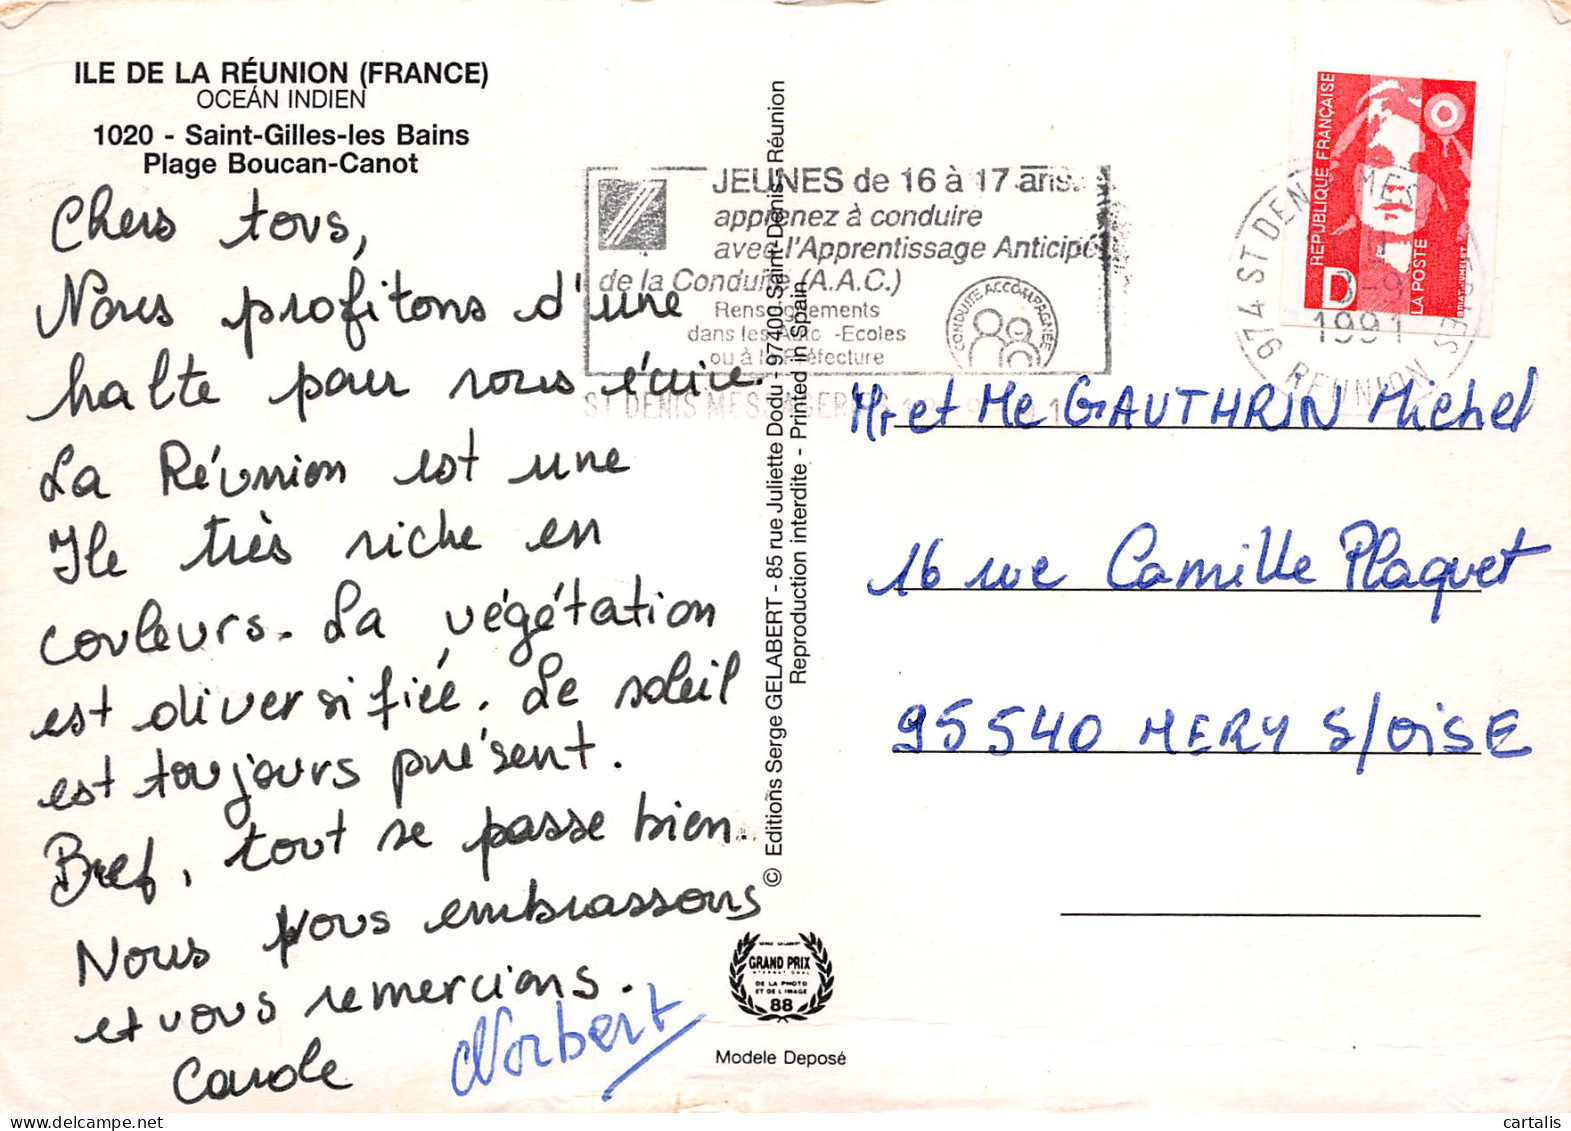 ILE DE LA RÉUNION (FRANCE)
OCEÁN INDIEN
1020 - Saint-Gilles-les Bains
Plage Boucan-Canot
Chers tous,
Nous profitons d'une
halte pour vous écrire.
La Réunion est une
Ile très riche en
couleurs. La végétation
est diversifiée. Le soleil
est toujours présent.
Bref, tout se passe bien.
Nous vous embrassons
et vous remercions.
Carole Norbert
© Editions Serge GELABERT - 85 rue Juliette Dodu - 97400 Saint-Denis - Réunion
Reproduction interdite - Printed in Spain
GRAND PRIX
INTERNATIONAL
DE LA PHOTO
ET DE L'IMAGE
88
Modele Deposé
JEUNES de 16 à 17 ans.
apprenez à conduire
avec l'Apprentissage Anticipé
de la Conduite (A.A.C.)
Renseignements
dans les Auto-Ecoles
ou à la Préfecture
CONDUITE ACCOMPAGNÉE
ST DENIS MESSAGERIES
RÉPUBLIQUE FRANÇAISE
D
LA POSTE
BRIAT-JUMELET
974 ST DENIS MESSAGERIES
1991
REUNION
Mr et Me GAUTHRIN Michel
16 rue Camille Plaquet
95540 MERY S/OISE
cartalis
delcampe.net